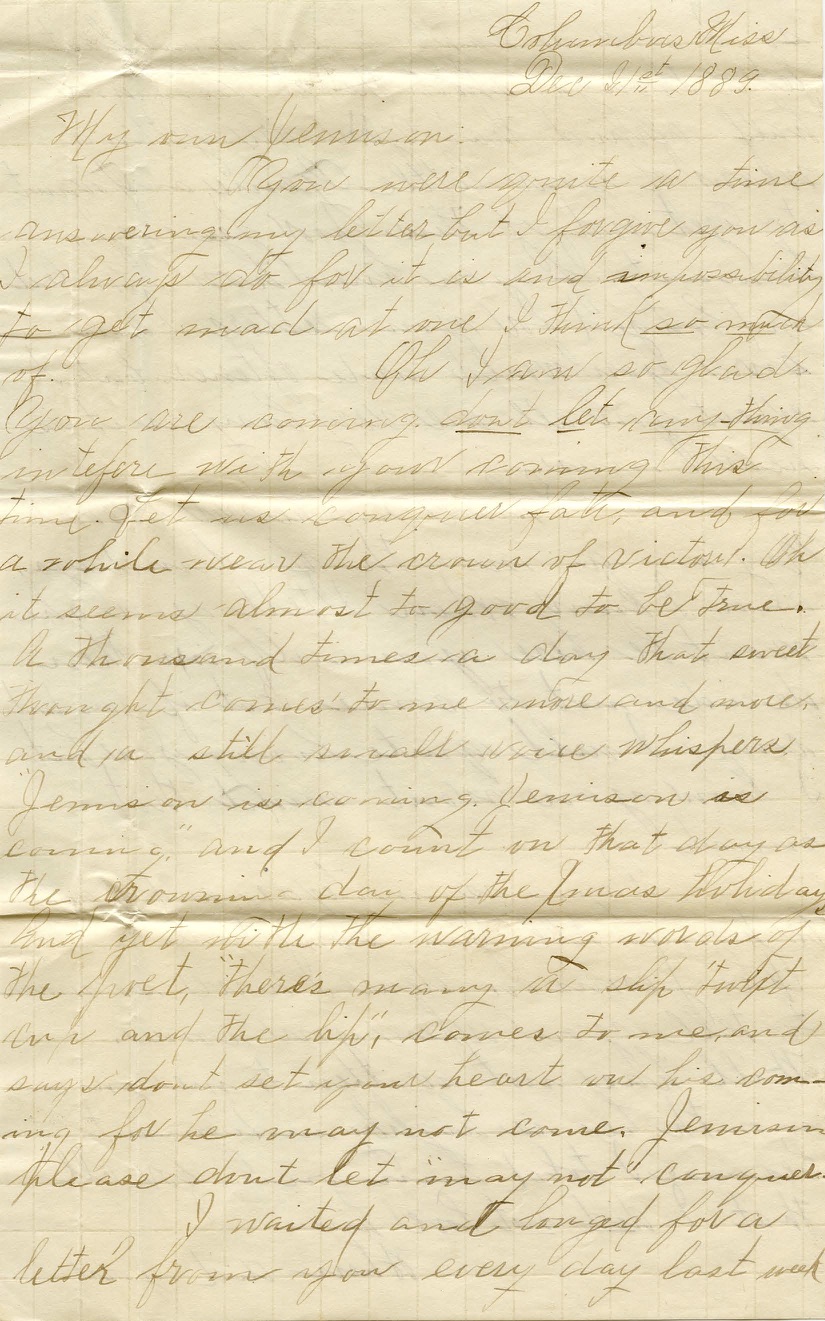 Columbus Miss
Dec 21st 1889.
My own Jemison.
You were quite a time
answering my letter, but I forgive you as
I always do for it is and impossibility
to get mad at one I think so much
of. Oh I am so glad
you are coming. dont let any-thing
intefere with your coming this
time. Let us conquer fate, and for
a while wear the crown of victory. Oh
it seems almost to good to be true.
A thousand times a day that sweet
thought comes to me more and more,
and a still small voice whispers
"Jemison is coming. Jemison is
coming," and I count on that day as
the crowning day of the Xmas holidays
And yet with the warning words of
the poet, "there's many a slip 'twixt
cup and the lip", comes to me, and
says dont set your heart on his com-
ing for he may not come. Jemison
please dont let "may not" conquer.
I waited and longed for a
letter from you every day last week